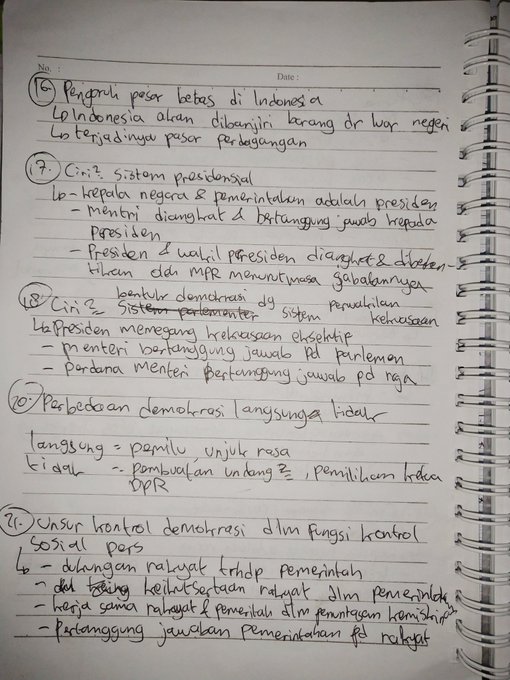 No. :
Date :
16. Pengaruh pasar bebas di Indonesia
↳ Indonesia akan dibanjiri barang dr luar negeri
↳ terjadinya pasar perdagangan
17. Ciri2 Sistem presidensial
↳ - kepala negara & pemerintahan adalah presiden
- mentri diangkat & bertanggung jawab kepada
presiden
- Presiden & wakil presiden diangkat & diberhen-
tikan oleh MPR menurut masa jabatannya
bentuk demokrasi dg perwakilan
18. Ciri2 Sistem parlementer sistem kekuasaan
↳ Presiden memegang kekuasaan eksektif
- menteri bertanggung jawab pd parlemen
- Perdana menteri bertanggung jawab pd nga
20. Perbedaan demokrasi langsung & tidak
langsung = pemilu, unjuk rasa
tidak = pembuatan undang2, pemilihan ketua
DPR
21. Unsur kontrol demokrasi dlm fungsi kontrol
Sosial pers
↳ - dukungan rakyat trhdp pemerintah
- keikutsertaan rakyat dlm pemerintah
- kerja sama rakyat & pemeritah dlm penuntasan
- pertanggung jawaban pemerintahan pd rakyat